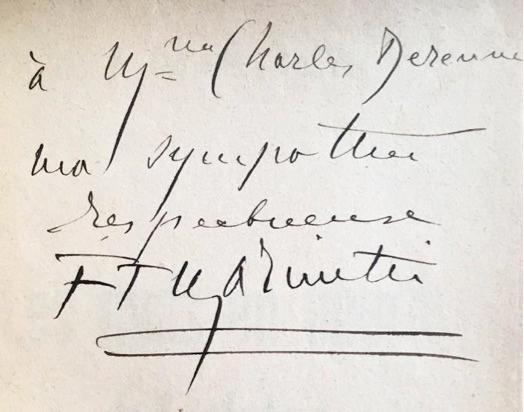 à Mme Charles Derenne
ma sympathie
respectueuse
FTMarinetti